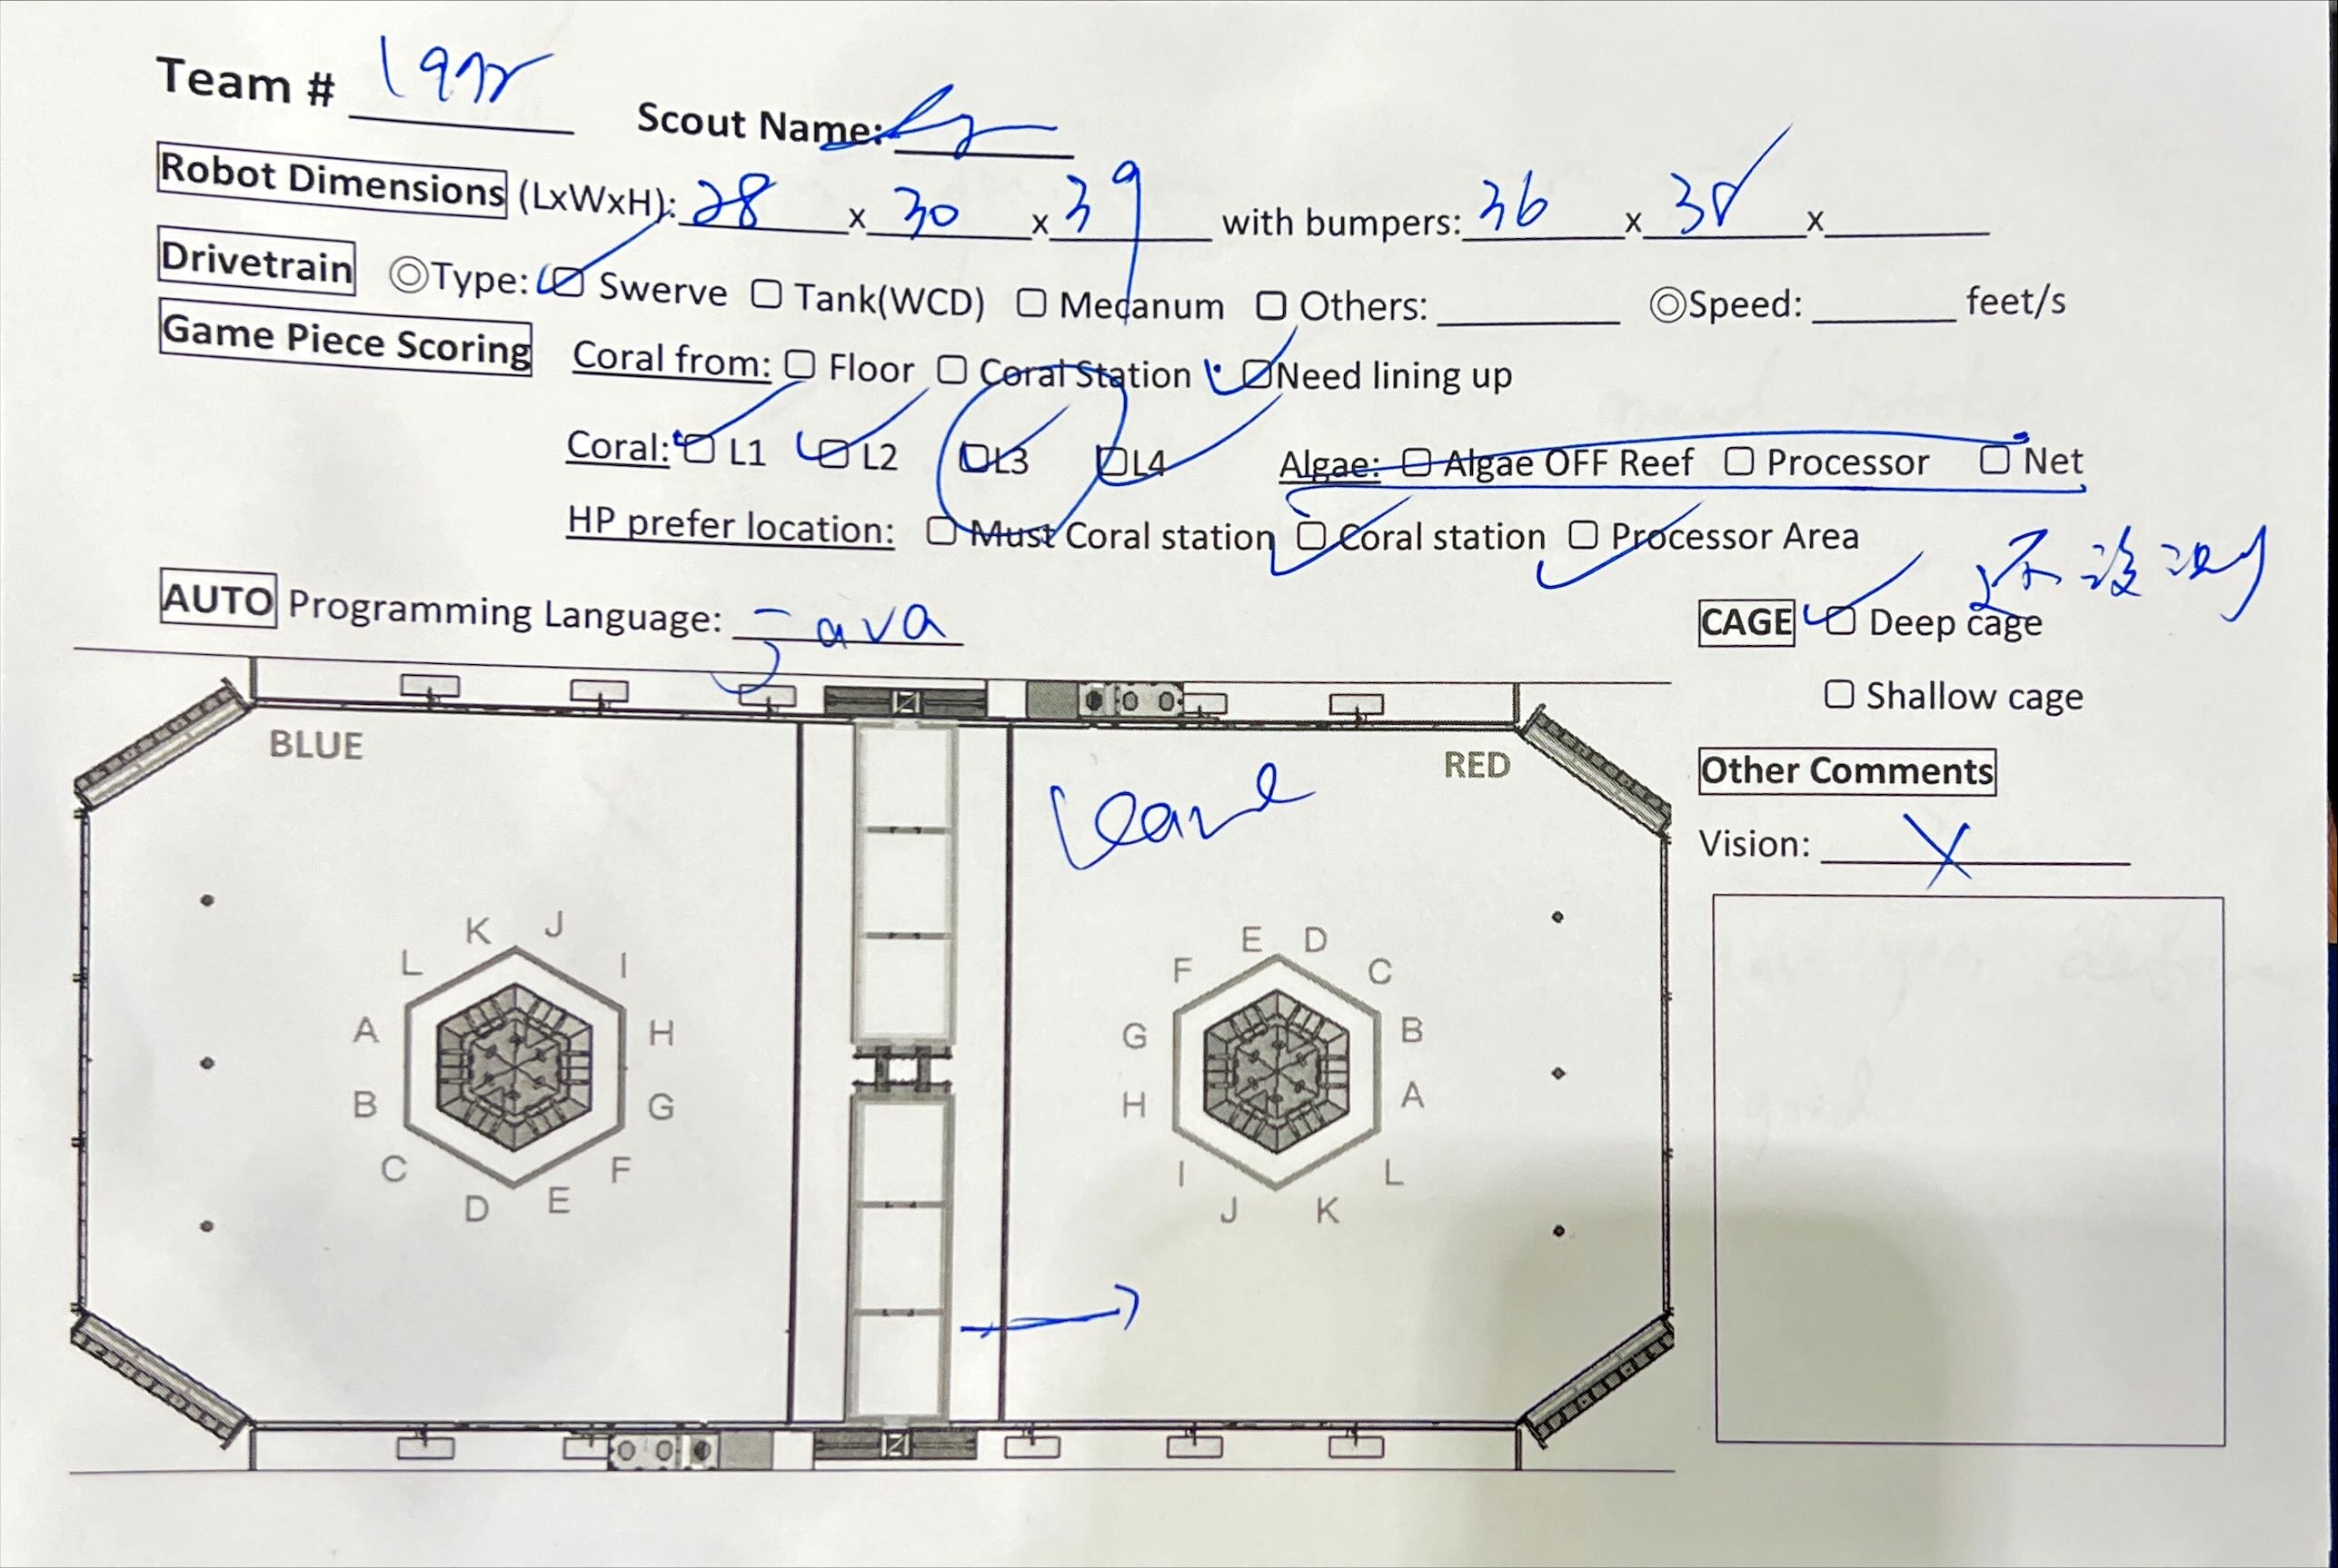 Team #
Scout Name:
Robot Dimensions (LxWxH): 28 x 30 x 39 with bumpers: 36 x 38 x
Drivetrain ◎Type: ☑ Swerve ☐ Tank(WCD) ☐ Mecanum ☐ Others: ◎Speed: feet/s
Game Piece Scoring Coral from: ☐ Floor ☐ Coral Station ☑ Need lining up
Coral: ☑ L1 ☑ L2 ☑ L3 ☑ L4 Algae: ☐ Algae OFF Reef ☐ Processor ☐ Net
HP prefer location: ☐ Must Coral station ☑ Coral station ☑ Processor Area
AUTO Programming Language: Java
CAGE ☑ Deep cage
不 没 测
☐ Shallow cage
Other Comments
Vision: X
BLUE
RED
Leave
K J
L I
A H
B G
C F
D E
E D
F C
G B
H A
I L
J K